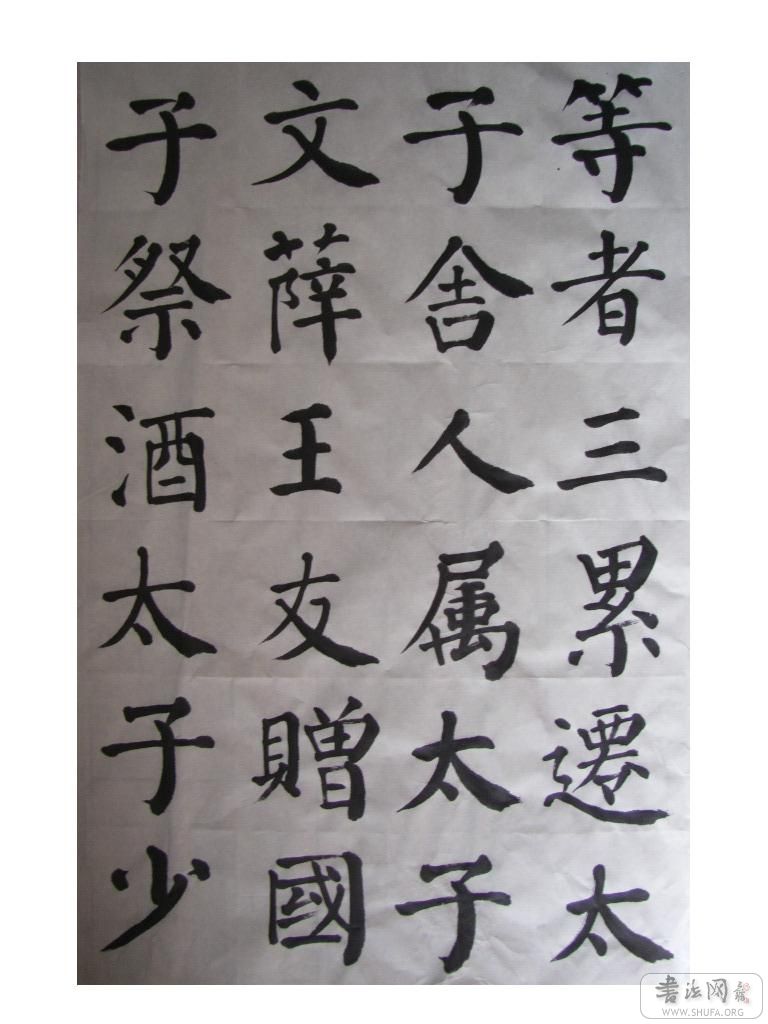 等者三累遷太
子舍人属太子
文薛王友贈國
子祭酒太子少
書法网
WWW.SHUFA.ORG